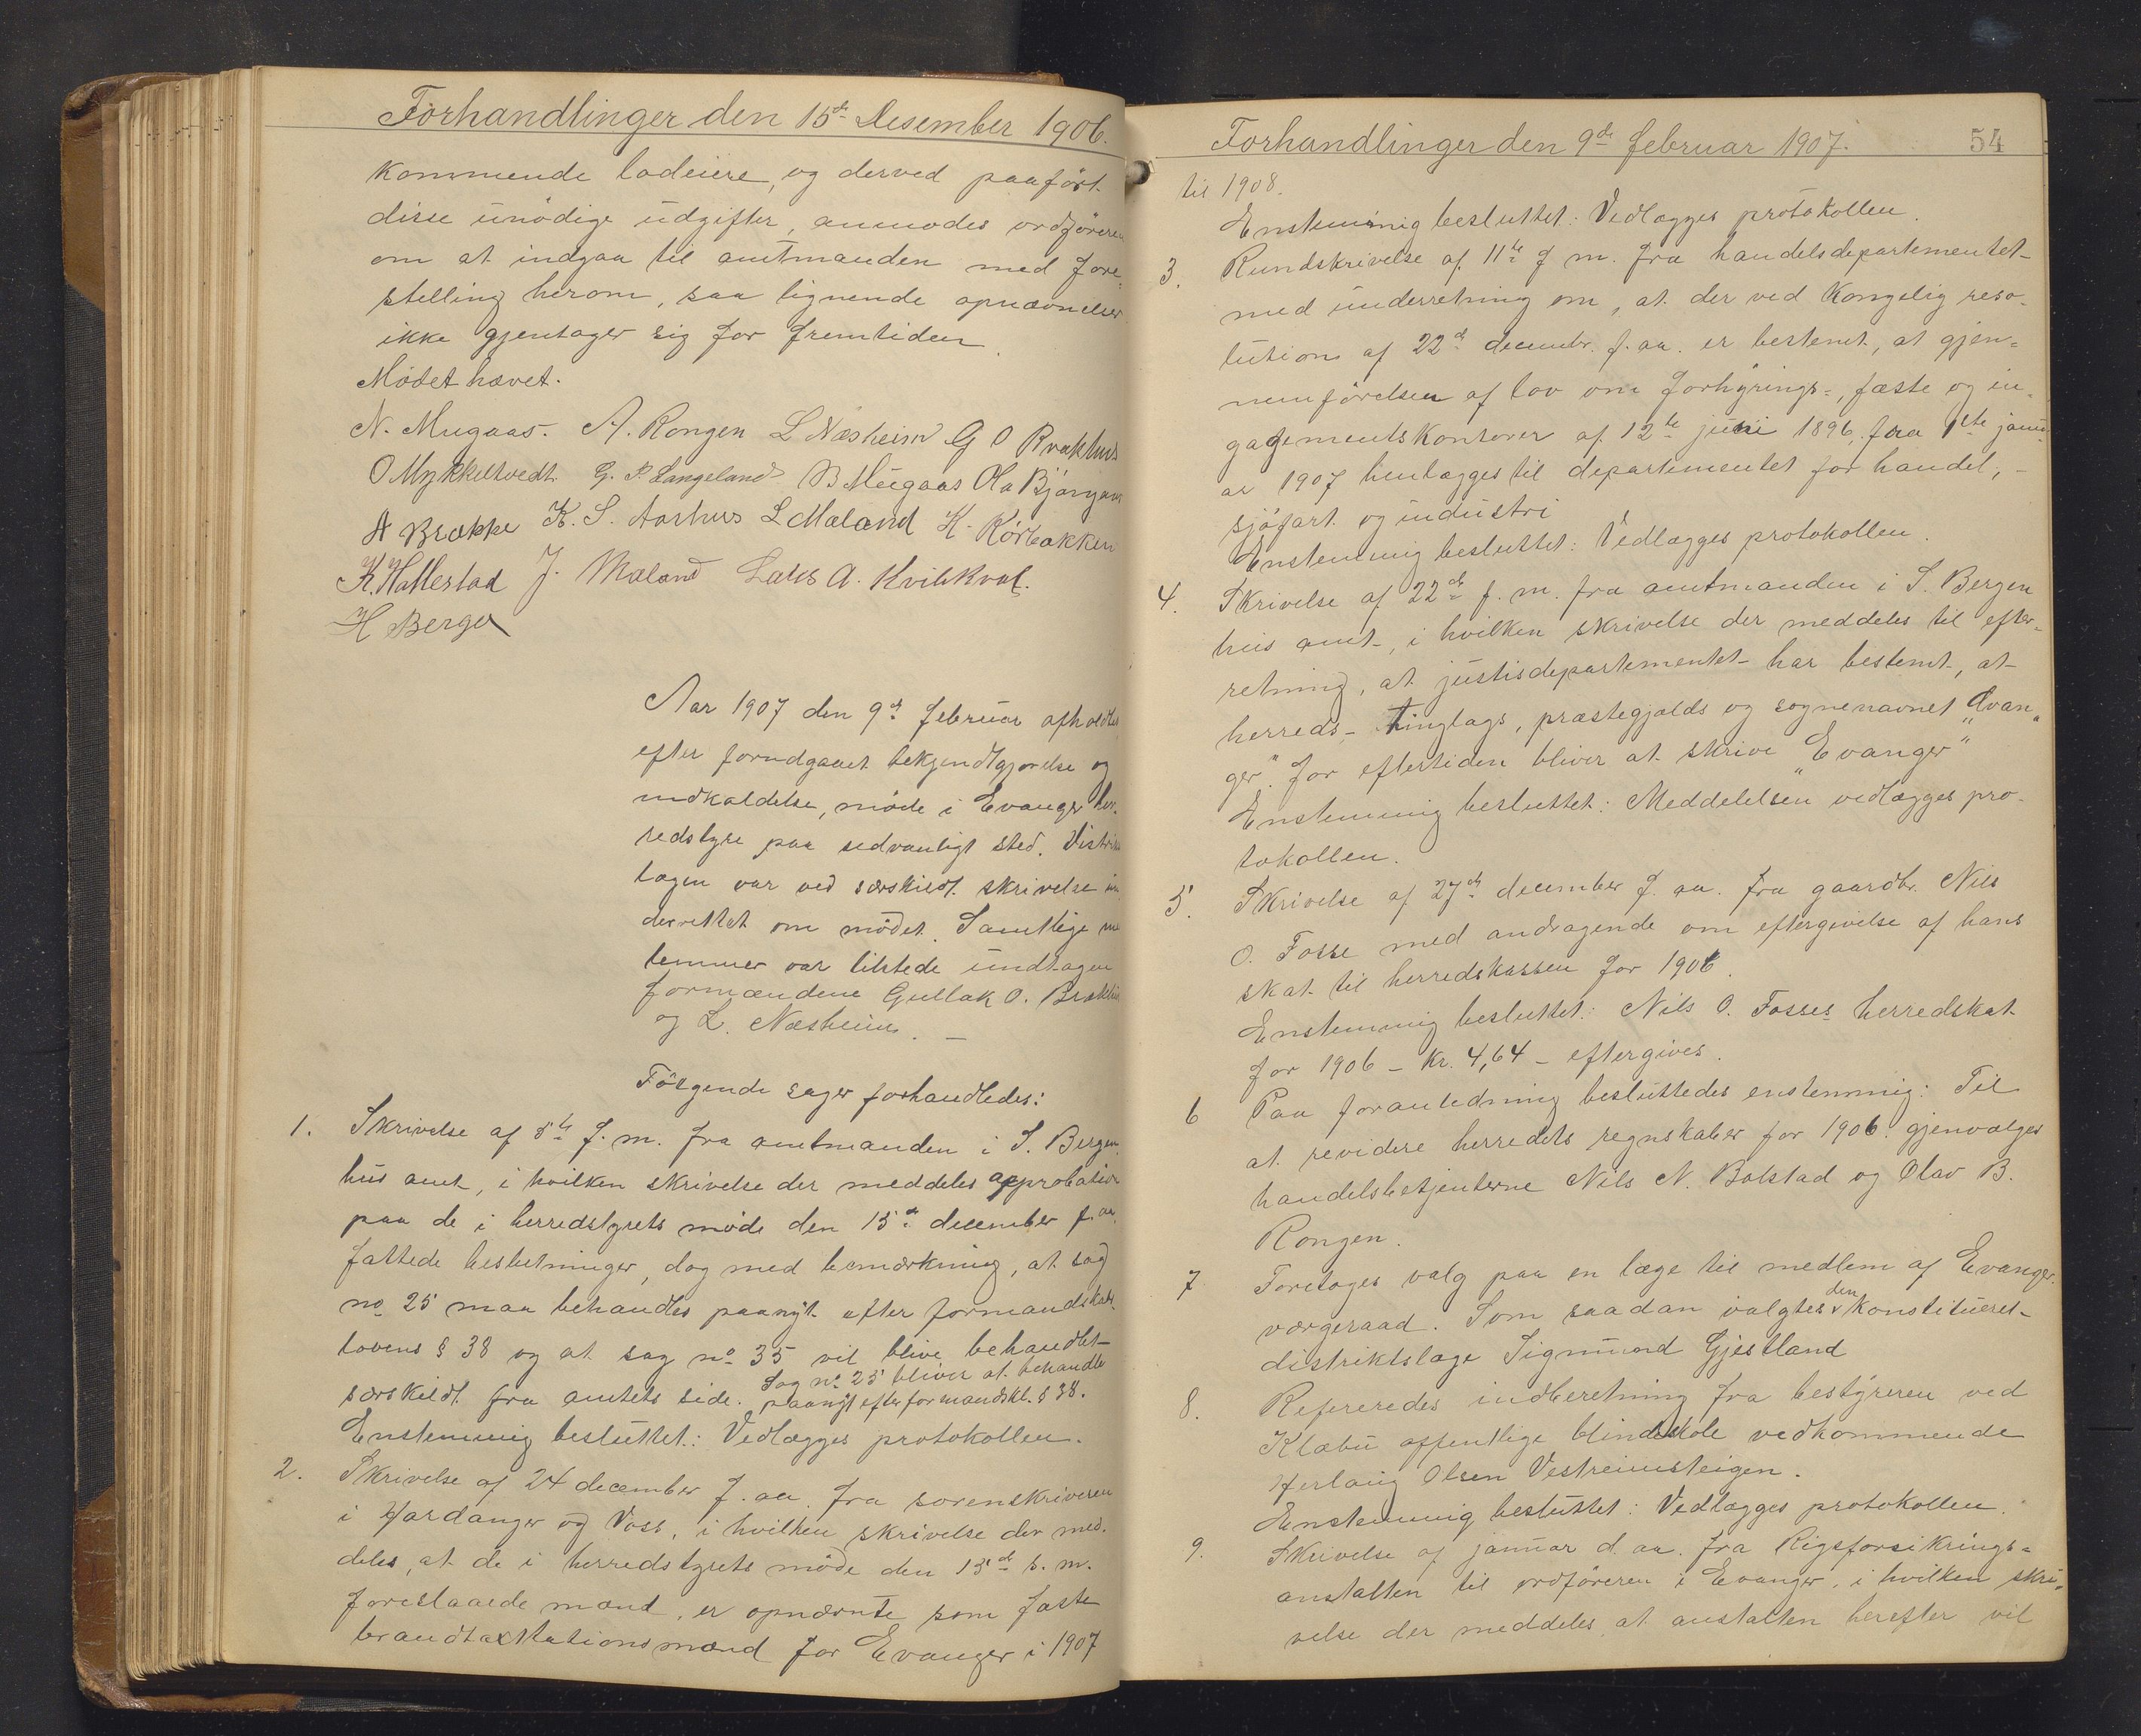 Forhandlinger den 15de Desember 1906.
kommende lodeiere, og derved paaført
disse unødige udgifter, anmodes ordføreren
om at indgaa til amtmanden med fore-
stelling herom, saa lignende opnævnelser
ikke gjentager sig for fremtiden.
Mødet hævet.
N. Mugaas. A. Rongen L Næsheim G O Brækhus
O Mykkeltvedt. G. P. Langeland B Mugaas Ola Bjørgum
A Brække K. S. Aarhus L Mæland K. Rørbakken
K. Hallestad J. Mæland Lars A. Kvilekval.
H Berge
Aar 1907 den 9de februar afholdtes
efter forudgaaet bekjendtgjørelse og
indkaldelse, møde i Evanger her-
redstyre paa sedvanligt sted. Distrikts
lægen var ved særskildt skrivelse un
derrettet om mødet. Samtlige med
lemmer var tilstede undtagen
formændene Gullak O. Brækhus
og L. Næsheim. —
Følgende sager forhandledes:
1. Skrivelse af 5te f. m. fra amtmanden i S. Bergen
hus amt, i hvilken skrivelse der meddeles approbation
paa de i herredstyrets møde den 15de december f. aa.
fattede beslutninger, dog med bemærkning, at sag
no 25 maa behandles paanyt efter formandskabs
lovens § 38 og at sag no 35 vil blive behandlet
særskildt fra amtets side. Sag no 25 bliver at behandle
paanyt efter formandskl. § 38.
Enstemmig besluttet: Vedlægges protokollen.
2. Skrivelse af 24 december f. aa. fra sorenskriveren
i Hardanger og Voss, i hvilken skrivelse der med-
deles, at de i herredstyrets møde den 15de s. m.
foreslaaede mænd, er opnævnte som faste
brandtaxtationsmænd for Evanger i 1907
Forhandlinger den 9de februar 1907. 54
til 1908.
Enstemmig besluttet: Vedlægges protokollen.
3. Rundskrivelse af 11te f m. fra handelsdepartementet
med underretning om, at der ved Kongelig reso-
lution af 22de decembr. f. aa. er bestemt, at gjen-
nemførelsen af lov om forhyrings-, fæste og in-
gagementskontorer af 12te juni 1896, fra 1ste janu-
ar 1907 henlægges til departementet for handel, -
sjøfart og industri
Enstemmig besluttet: Vedlægges protokollen.
4. Skrivelse af 22de f. m. fra amtmanden i S. Bergen
hus amt, i hvilken skrivelse der meddeles til efter-
retning, at justisdepartementet har bestemt, at
herreds- tinglags, præstegjælds og sognenavnet „Evan„
ger“ for eftertiden bliver at skrive „Evanger“
Enstemmig besluttet: Meddelelsen vedlægges pro-
tokollen.
5. Skrivelse af 27de december f. aa. fra gaardbr. Nils
O. Fosse med andragende om eftergivelse af hans
skat til herredskassen for 1906.
Enstemmig besluttet: Nils O. Fosses herredskat
for 1906 - kr. 4,64 - eftergives.
6 Paa foranledning besluttedes enstemmig: Til
at revidere herredets regnskaber for 1906 gjenvælges
handelsbetjenterne Nils N. Bolstad og Olav B.
Rongen.
7 Foretoges valg paa en læge til medlem af Evanger
værgeraad. Som saadan valgtes den konstitueret
distriktslæge Sigmund Gjestland
8. Refereredes indberetning fra bestyreren ved
Klæbu offentlige blindskole vedkommende
Herlaug Olsen Vestreimsteigen.
Enstemmig besluttet: Vedlægges protokollen.
9. Skrivelse af januar d. aa. fra Rigsforsikrings-
anstalten til ordføreren i Evanger, i hvilken skri-
velse der meddeles at anstalten herefter vil